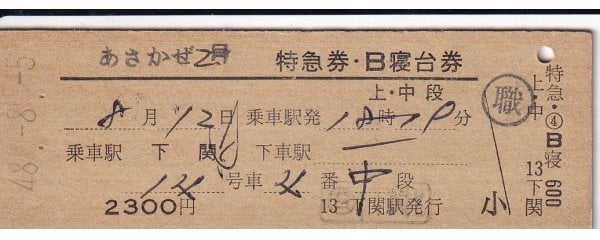 48.-8.-5
あさかぜ2号 特急券・B寝台券
上・中段
職
8月12日 乗車駅発 18時 分
乗車駅 下関 下車駅
12号車 2番 中段
2300円 13 下関駅発行 小
特急・④B寝 600
上・中 13下関